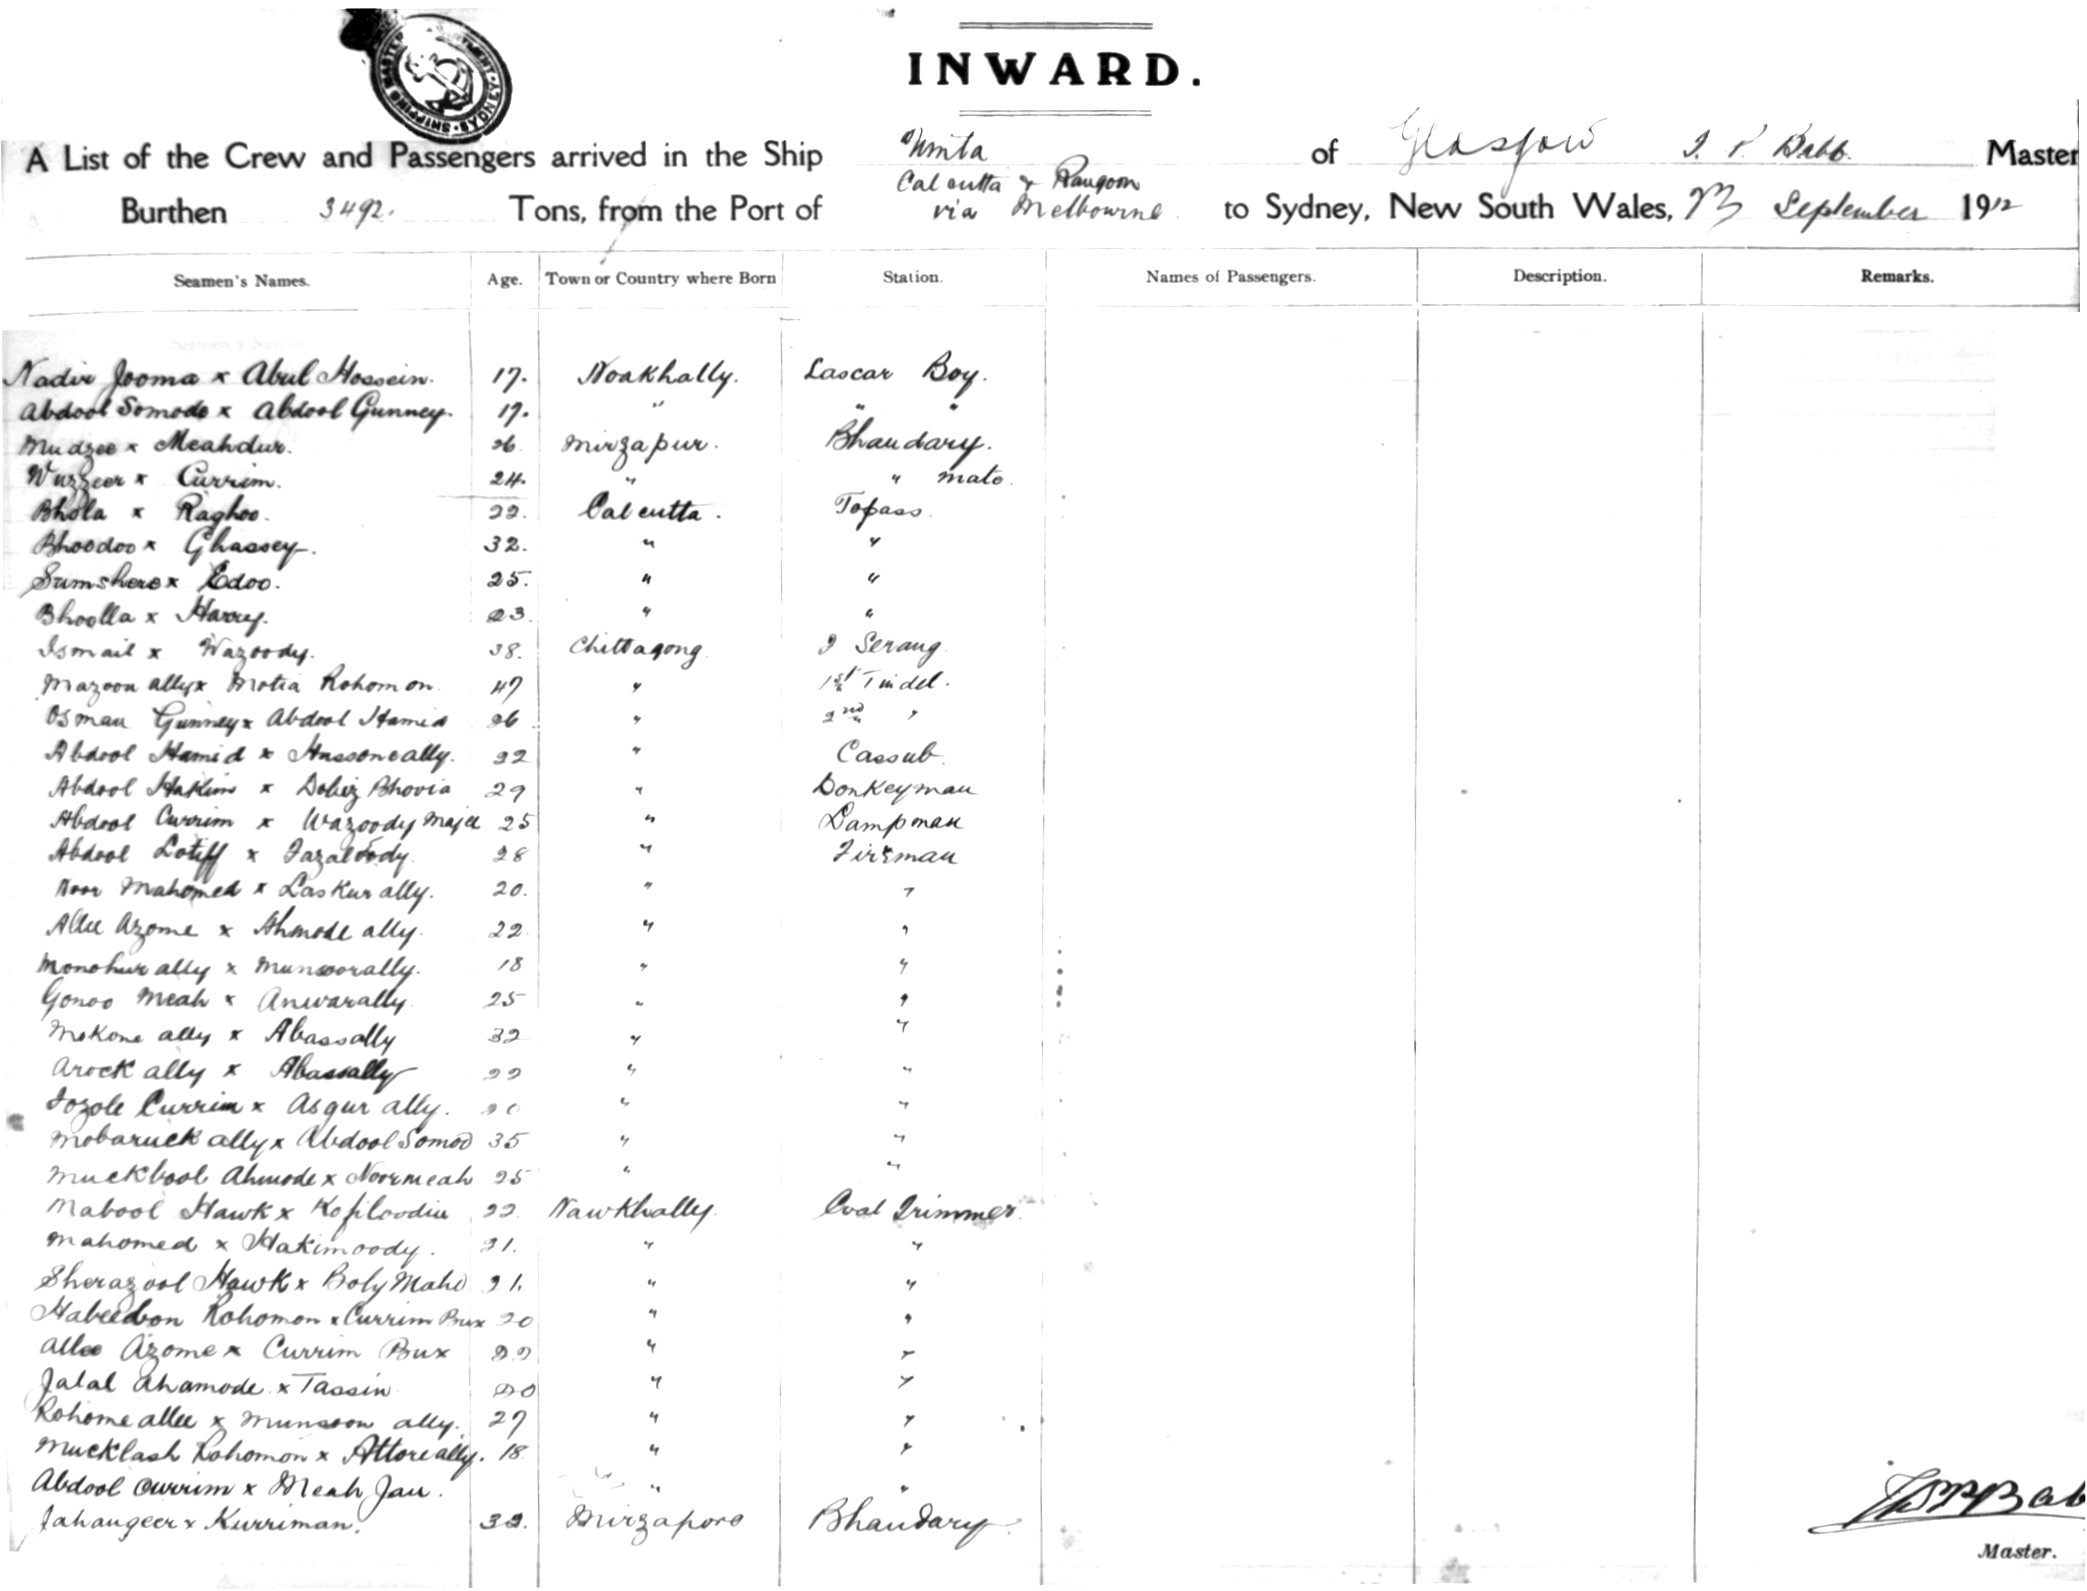 SHIPPING MASTER DEPARTMENT SYDNEY
INWARD.
A List of the Crew and Passengers arrived in the Ship Umta of Glasgow J. P. Babb. Master
Calcutta & Rangoon
Burthen 3492. Tons, from the Port of via Melbourne to Sydney, New South Wales, September 1912
Seamen's Names. Age. Town or Country where Born Station. Names of Passengers. Description. Remarks.
Nadir Jooma x Abul Hossein. 17. Noakhally. Lascar Boy.
Abdool Somode x Abdool Gunney. 17. " " "
Mudzoo x Meahdur. 26 Mirzapur. Bhandary.
Wuzzeer x Currim. 24. " " mate.
Bhola x Raghoo. 22. Calcutta. Topass.
Bhoodoo x Ghassey. 32. " "
Sumshere x Edoo. 25. " "
Bhoolla x Harry. 23. " "
Ismail x Wazoody. 38. Chittagong. Serang
Mazoon ally x Motia Rohomon 47 " 1st Tindel.
Osman Gunney x Abdool Hamid 26 " 2nd "
Abdool Hamid x Hussoneally. 22 " Cassub.
Abdool Hakim x Bhovia 29 " Donkeyman
Abdool Currim x Wazoody Majee 25 " Lampman
Abdool Lotiff x Fazaloody. 28 " Fireman
Noor Mahomed x Laskur ally. 20. " "
Allee Azome x Ahmode ally. 22 " "
Monohur ally x Munsoorally. 18 " "
Gonoo Meah x Anwarally. 25 " "
Mokone ally x Abassally 32 " "
Arock ally x Abassally 22 " "
Fozole Currim x Asgur ally. 20 " "
Mobaruck ally x Abdool Somod 35 " "
Muckbool Ahmode x Noormeah 25 " "
Mabool Hawk x Kofiloodin 22. Nawkhally. Coal Trimmer.
Mahomed x Hakimoody. 21. " "
Sherazool Hawk x Boly Mahd 21. " "
Habeebon Rohomon x Currim Bux 20 " "
Allee Azome x Currim Bux 22 " "
Jalal Ahamode x Tassin 20 " "
Rohome allee x Munsoon ally. 27 " "
Mucklash Rohomon x Attore ally. 18 " "
Abdool Currim x Meah Jan. " "
Jahangeer x Kurriman. 32. Mirzapore Bhandary.
Babb
Master.